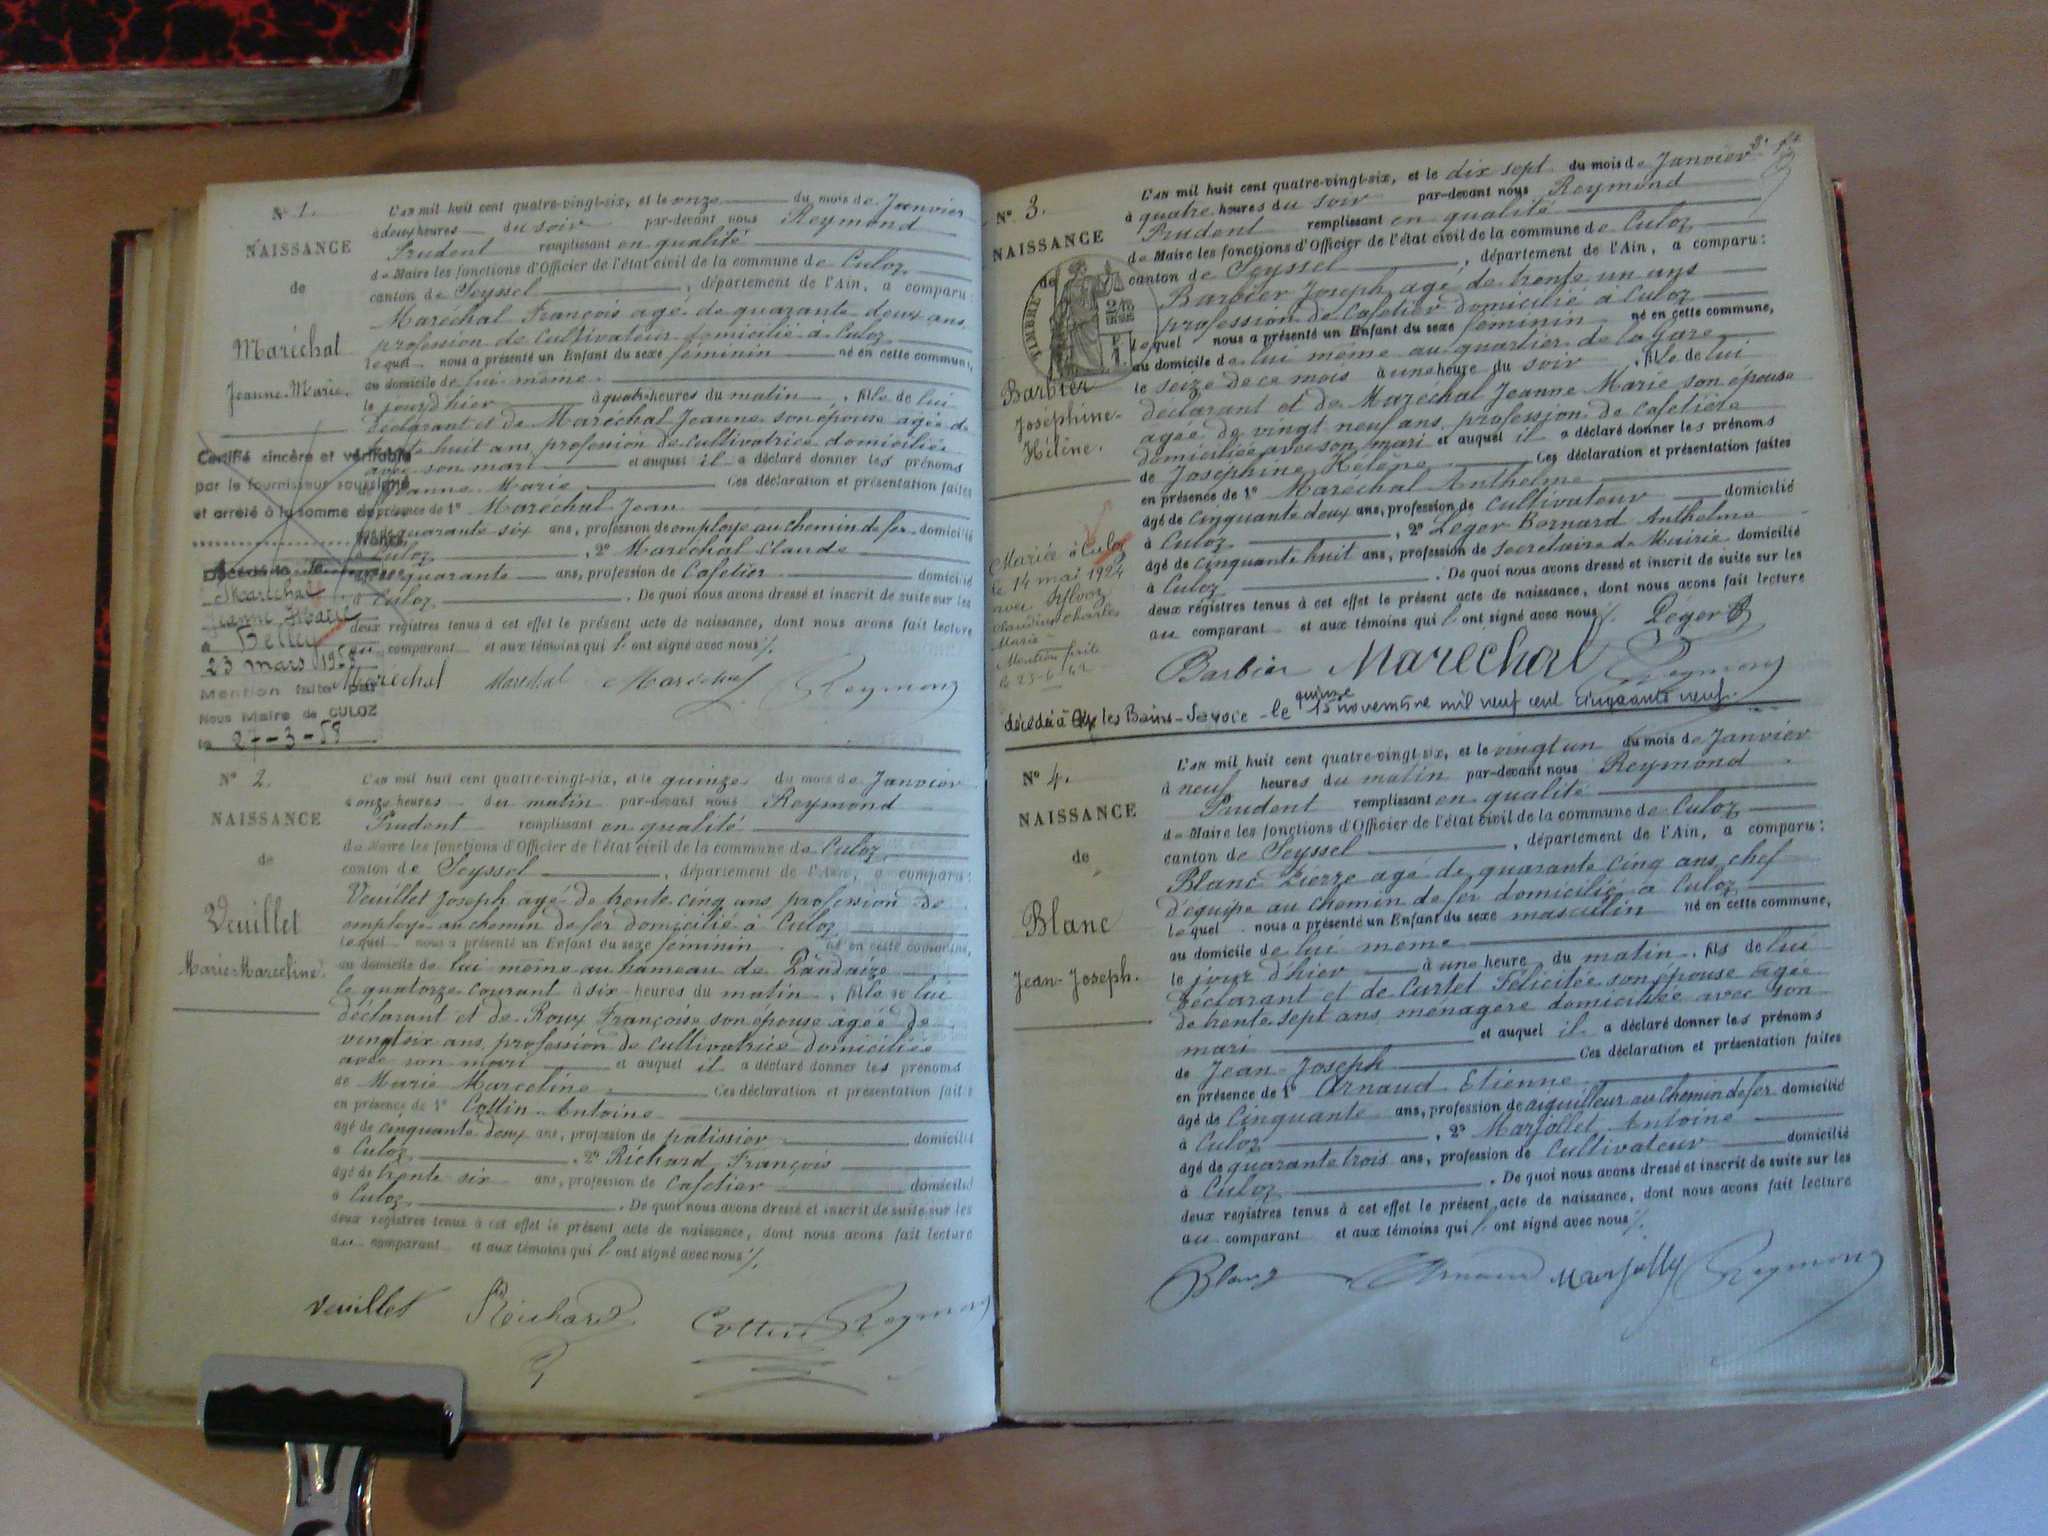 N° 1.
NAISSANCE
de
Maréchal
Jeanne-Marie.
L'an mil huit cent quatre-vingt-six, et le onze du mois de Janvier
à deux heures du soir par-devant nous Reymond
Prudent remplissant en qualité
de Maire les fonctions d'Officier de l'état civil de la commune de Culoz
canton de Seyssel, département de l'Ain, a comparu:
Maréchal François agé de quarante deux ans
profession de cultivateur domicilié à Culoz
lequel nous a présenté un Enfant du sexe féminin né en cette commune,
au domicile de lui même.
le jour d'hier à quatre heures du matin, fille de lui
déclarant et de Maréchal Jeanne son épouse agée de
huit ans profession de cultivatrice domiciliée
avec son mari et auquel il a déclaré donner les prénoms
de Jeanne Marie Ces déclaration et présentation faites
en présence de 1° Maréchal Jean
agé de quarante six ans, profession de employé au chemin de fer domicilié
à Culoz, 2° Maréchal Claude
agé de quarante ans, profession de Cafetier domicilié
à Culoz. De quoi nous avons dressé et inscrit de suite sur les
deux registres tenus à cet effet le présent acte de naissance, dont nous avons fait lecture
au comparant et aux témoins qui l'ont signé avec nous ./.
Maréchal Maréchal Maréchal Reymond
Certifié sincère et véritable
par le fournisseur soussigné
et arrêté à la somme de
francs
Maréchal
Jeanne Marie
à Belley
23 mars 1958
Mention faite par
Nous Maire de CULOZ
le 27-3-58
N° 2.
NAISSANCE
de
Veuillet
Marie-Marceline.
L'an mil huit cent quatre-vingt-six, et le quinze du mois de Janvier
à onze heures du matin par-devant nous Reymond
Prudent remplissant en qualité
de Maire les fonctions d'Officier de l'état civil de la commune de Culoz
canton de Seyssel, département de l'Ain, a comparu:
Veuillet Joseph agé de trente cinq ans profession de
employé au chemin de fer domicilié à Culoz
lequel nous a présenté un Enfant du sexe féminin né en cette commune,
au domicile de lui même au hameau de Landaize
le quatorze courant à six heures du matin, fille de lui
déclarant et de Roux Françoise son épouse agée de
vingt six ans, profession de cultivatrice domiciliée
avec son mari et auquel il a déclaré donner les prénoms
de Marie Marceline. Ces déclaration et présentation faites
en présence de 1° Cottin Antoine
agé de cinquante deux ans, profession de patissier domicilié
à Culoz, 2° Richard François
agé de trente six ans, profession de Cafetier domicilié
à Culoz. De quoi nous avons dressé et inscrit de suite sur les
deux registres tenus à cet effet le présent acte de naissance, dont nous avons fait lecture
au comparant et aux témoins qui l'ont signé avec nous ./.
Veuillet Richard Cottin Reymond
N° 3.
NAISSANCE
de
TIMBRE
Barbier
Joséphine-
Hélène.
L'an mil huit cent quatre-vingt-six, et le dix sept du mois de Janvier
à quatre heures du soir par-devant nous Reymond
Prudent remplissant en qualité
de Maire les fonctions d'Officier de l'état civil de la commune de Culoz
canton de Seyssel, département de l'Ain, a comparu:
Barbier Joseph, agé de trente un ans
profession de Cafetier domicilié à Culoz
lequel nous a présenté un Enfant du sexe féminin né en cette commune,
au domicile de lui même au quartier de la gare
le seize de ce mois à une heure du soir, fille de lui
déclarant et de Maréchal Jeanne Marie son épouse
agée de vingt neuf ans, profession de Cafetière
domiciliée avec son mari et auquel il a déclaré donner les prénoms
de Joséphine Hélène Ces déclaration et présentation faites
en présence de 1° Maréchal Anthelme
agé de cinquante deux ans, profession de cultivateur domicilié
à Culoz, 2° Léger Bernard Anthelme
agé de cinquante huit ans, profession de secrétaire de Mairie domicilié
à Culoz. De quoi nous avons dressé et inscrit de suite sur les
deux registres tenus à cet effet le présent acte de naissance, dont nous avons fait lecture
au comparant et aux témoins qui l'ont signé avec nous ./. Léger B
Barbier Maréchal Reymond
Mariée à Culoz
le 14 mai 1924
avec
Claudius Charles
Marie
Mention faite
le 23-6-42
quinze
décédée à Aix les Bains-Savoie-le 15 novembre mil neuf cent cinquante neuf.
N° 4.
NAISSANCE
de
Blanc
Jean-Joseph.
L'an mil huit cent quatre-vingt-six, et le vingt un du mois de Janvier
à neuf heures du matin par-devant nous Reymond
Prudent remplissant en qualité
de Maire les fonctions d'Officier de l'état civil de la commune de Culoz
canton de Seyssel, département de l'Ain, a comparu:
Blanc Pierre agé de quarante cinq ans, chef
d'équipe au chemin de fer domicilié à Culoz
lequel nous a présenté un Enfant du sexe masculin né en cette commune,
au domicile de lui même
le jour d'hier à une heure du matin, fils de lui
déclarant et de Curtet Félicitée son épouse agée
de trente sept ans, ménagère domiciliée avec son
mari et auquel il a déclaré donner les prénoms
de Jean-Joseph Ces déclaration et présentation faites
en présence de 1° Arnaud Etienne
agé de Cinquante ans, profession de aiguilleur au chemin de fer domicilié
à Culoz, 2° Marjollet Antoine
agé de quarante trois ans, profession de Cultivateur domicilié
à Culoz. De quoi nous avons dressé et inscrit de suite sur les
deux registres tenus à cet effet le présent acte de naissance, dont nous avons fait lecture
au comparant et aux témoins qui l'ont signé avec nous ./.
Blanc Arnaud Marjollet Reymond